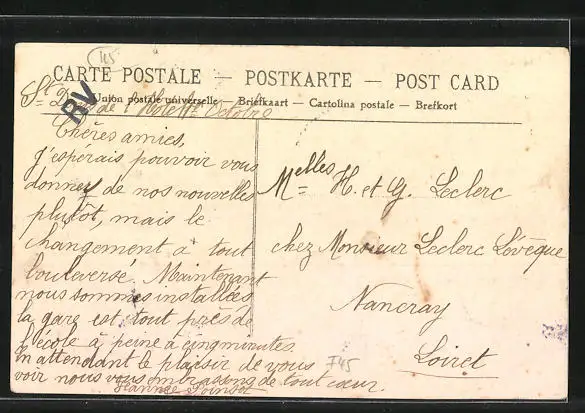 145
CARTE POSTALE — POSTKARTE — POST CARD
Union postale universelle — Briefkaart — Cartolina postale — Brefkort
RV
St Denis de l'Hôtel Octobre
Chères amies,
j'espérais pouvoir vous
donner de nos nouvelles
plutôt, mais le
changement a tout
bouleversé. Maintenant
nous sommes installées
la gare est tout près de
l'école à peine à cinq minutes.
En attendant le plaisir de vous
voir nous vous embrassons de tout cœur.
Jeanne
Melles H. et G. Leclerc
chez Monsieur Leclerc Lévêque
Nancray
Loiret
F45